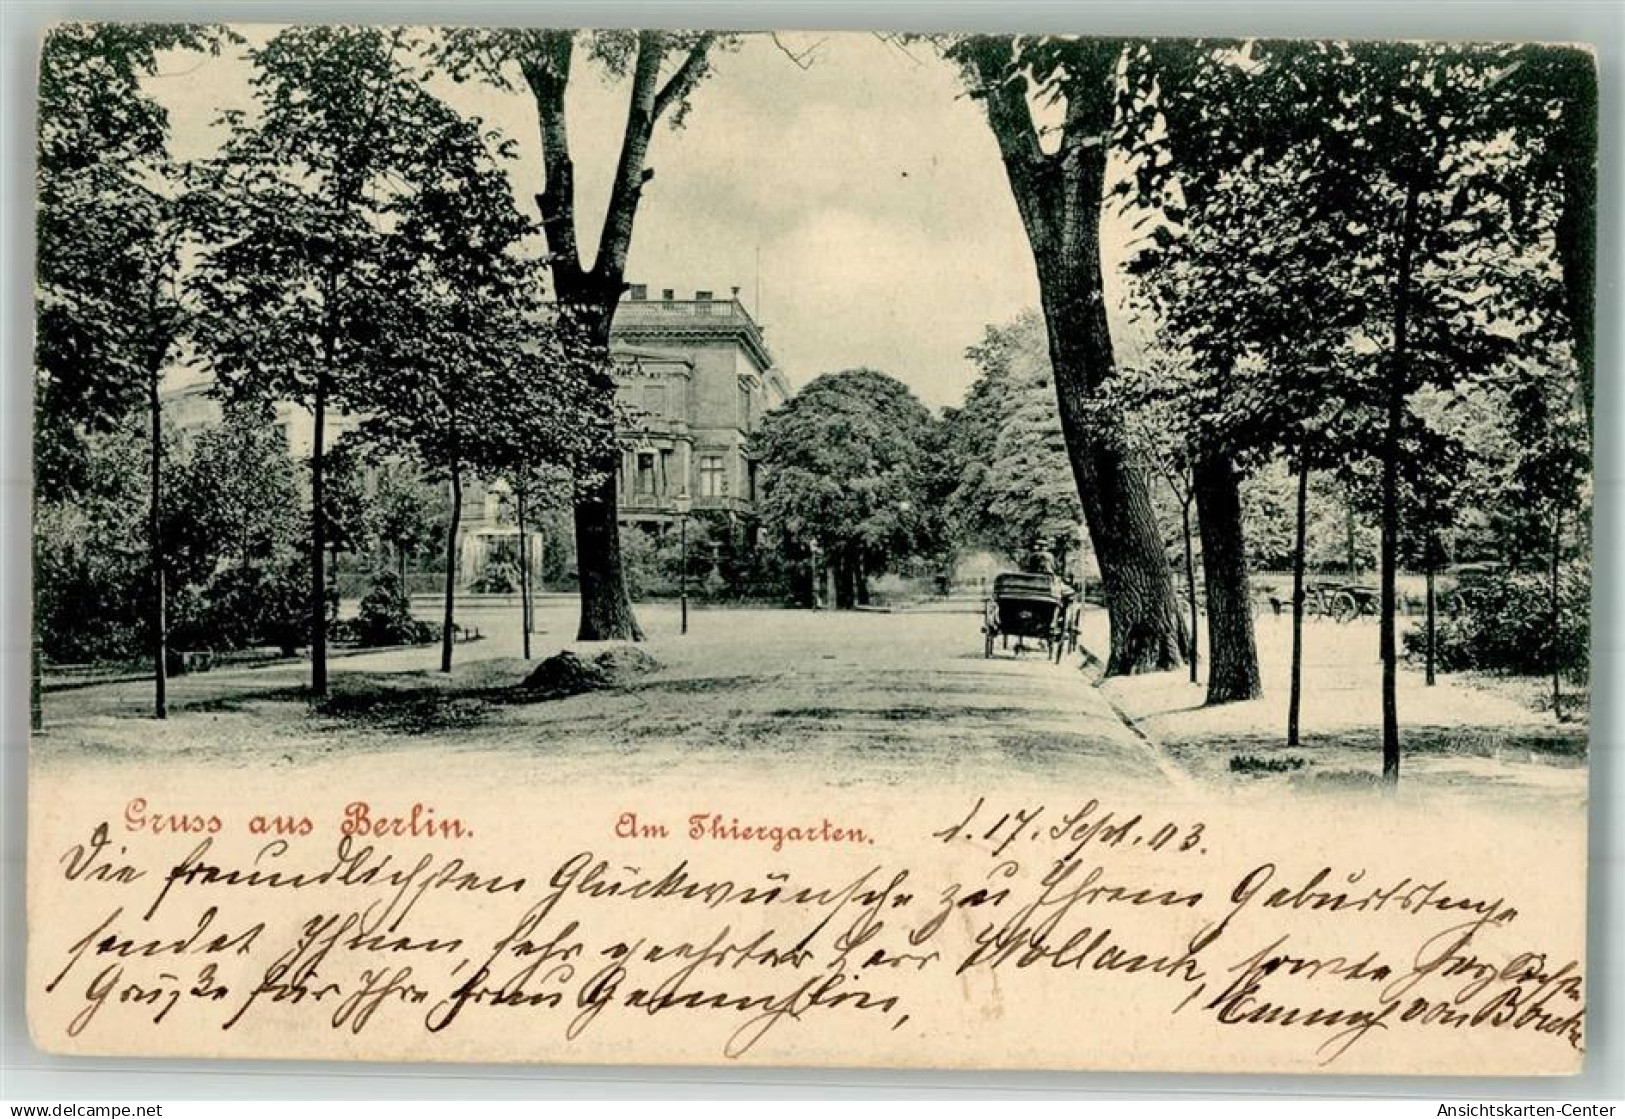 Gruss aus Berlin.
Am Thiergarten.
d. 17. Sept. 03.
Die freundlichsten Glückwünsche zu Ihrem Geburtstage
sendet Ihnen, sehr geehrter Herr Wollank, sowie herzlichste
Grüße für Ihre Frau Gemahlin,
Emmy von
delcampe.net
Ansichtskarten-Center